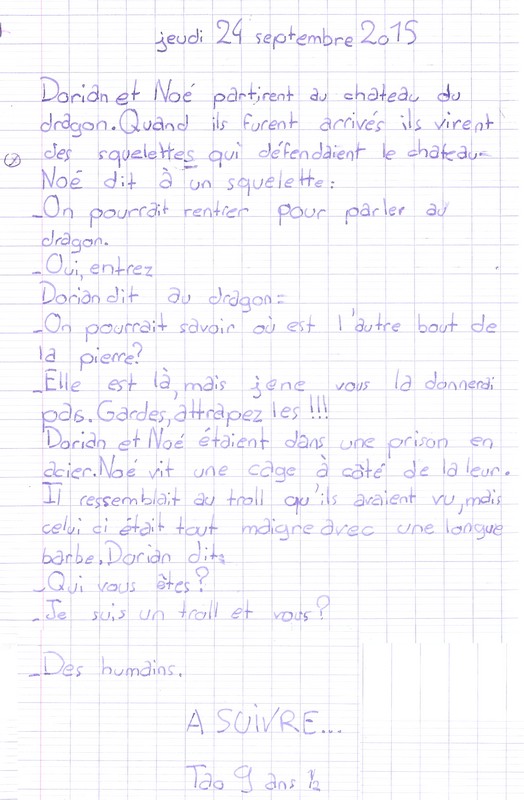 jeudi 24 septembre 2015
Dorian et Noé partirent au chateau du
dragon. Quand ils furent arrivés ils virent
des squelettes qui défendaient le chateau.
Noé dit à un squelette:
_On pourrait rentrer pour parler au
dragon.
_Oui, entrez
Dorian dit au dragon:
_On pourrait savoir où est l'autre bout de
la pierre?
_Elle est là, mais je ne vous la donnerai
pas. Gardes, attrapez les !!!
Dorian et Noé étaient dans une prison en
acier. Noé vit une cage à côté de la leur.
Il ressemblait au troll qu'ils avaient vu, mais
celui ci était tout maigre avec une longue
barbe. Dorian dit:
_Qui vous êtes?
_Je suis un troll et vous?
_Des humains.
A SUIVRE...
Tao 9 ans 1/2